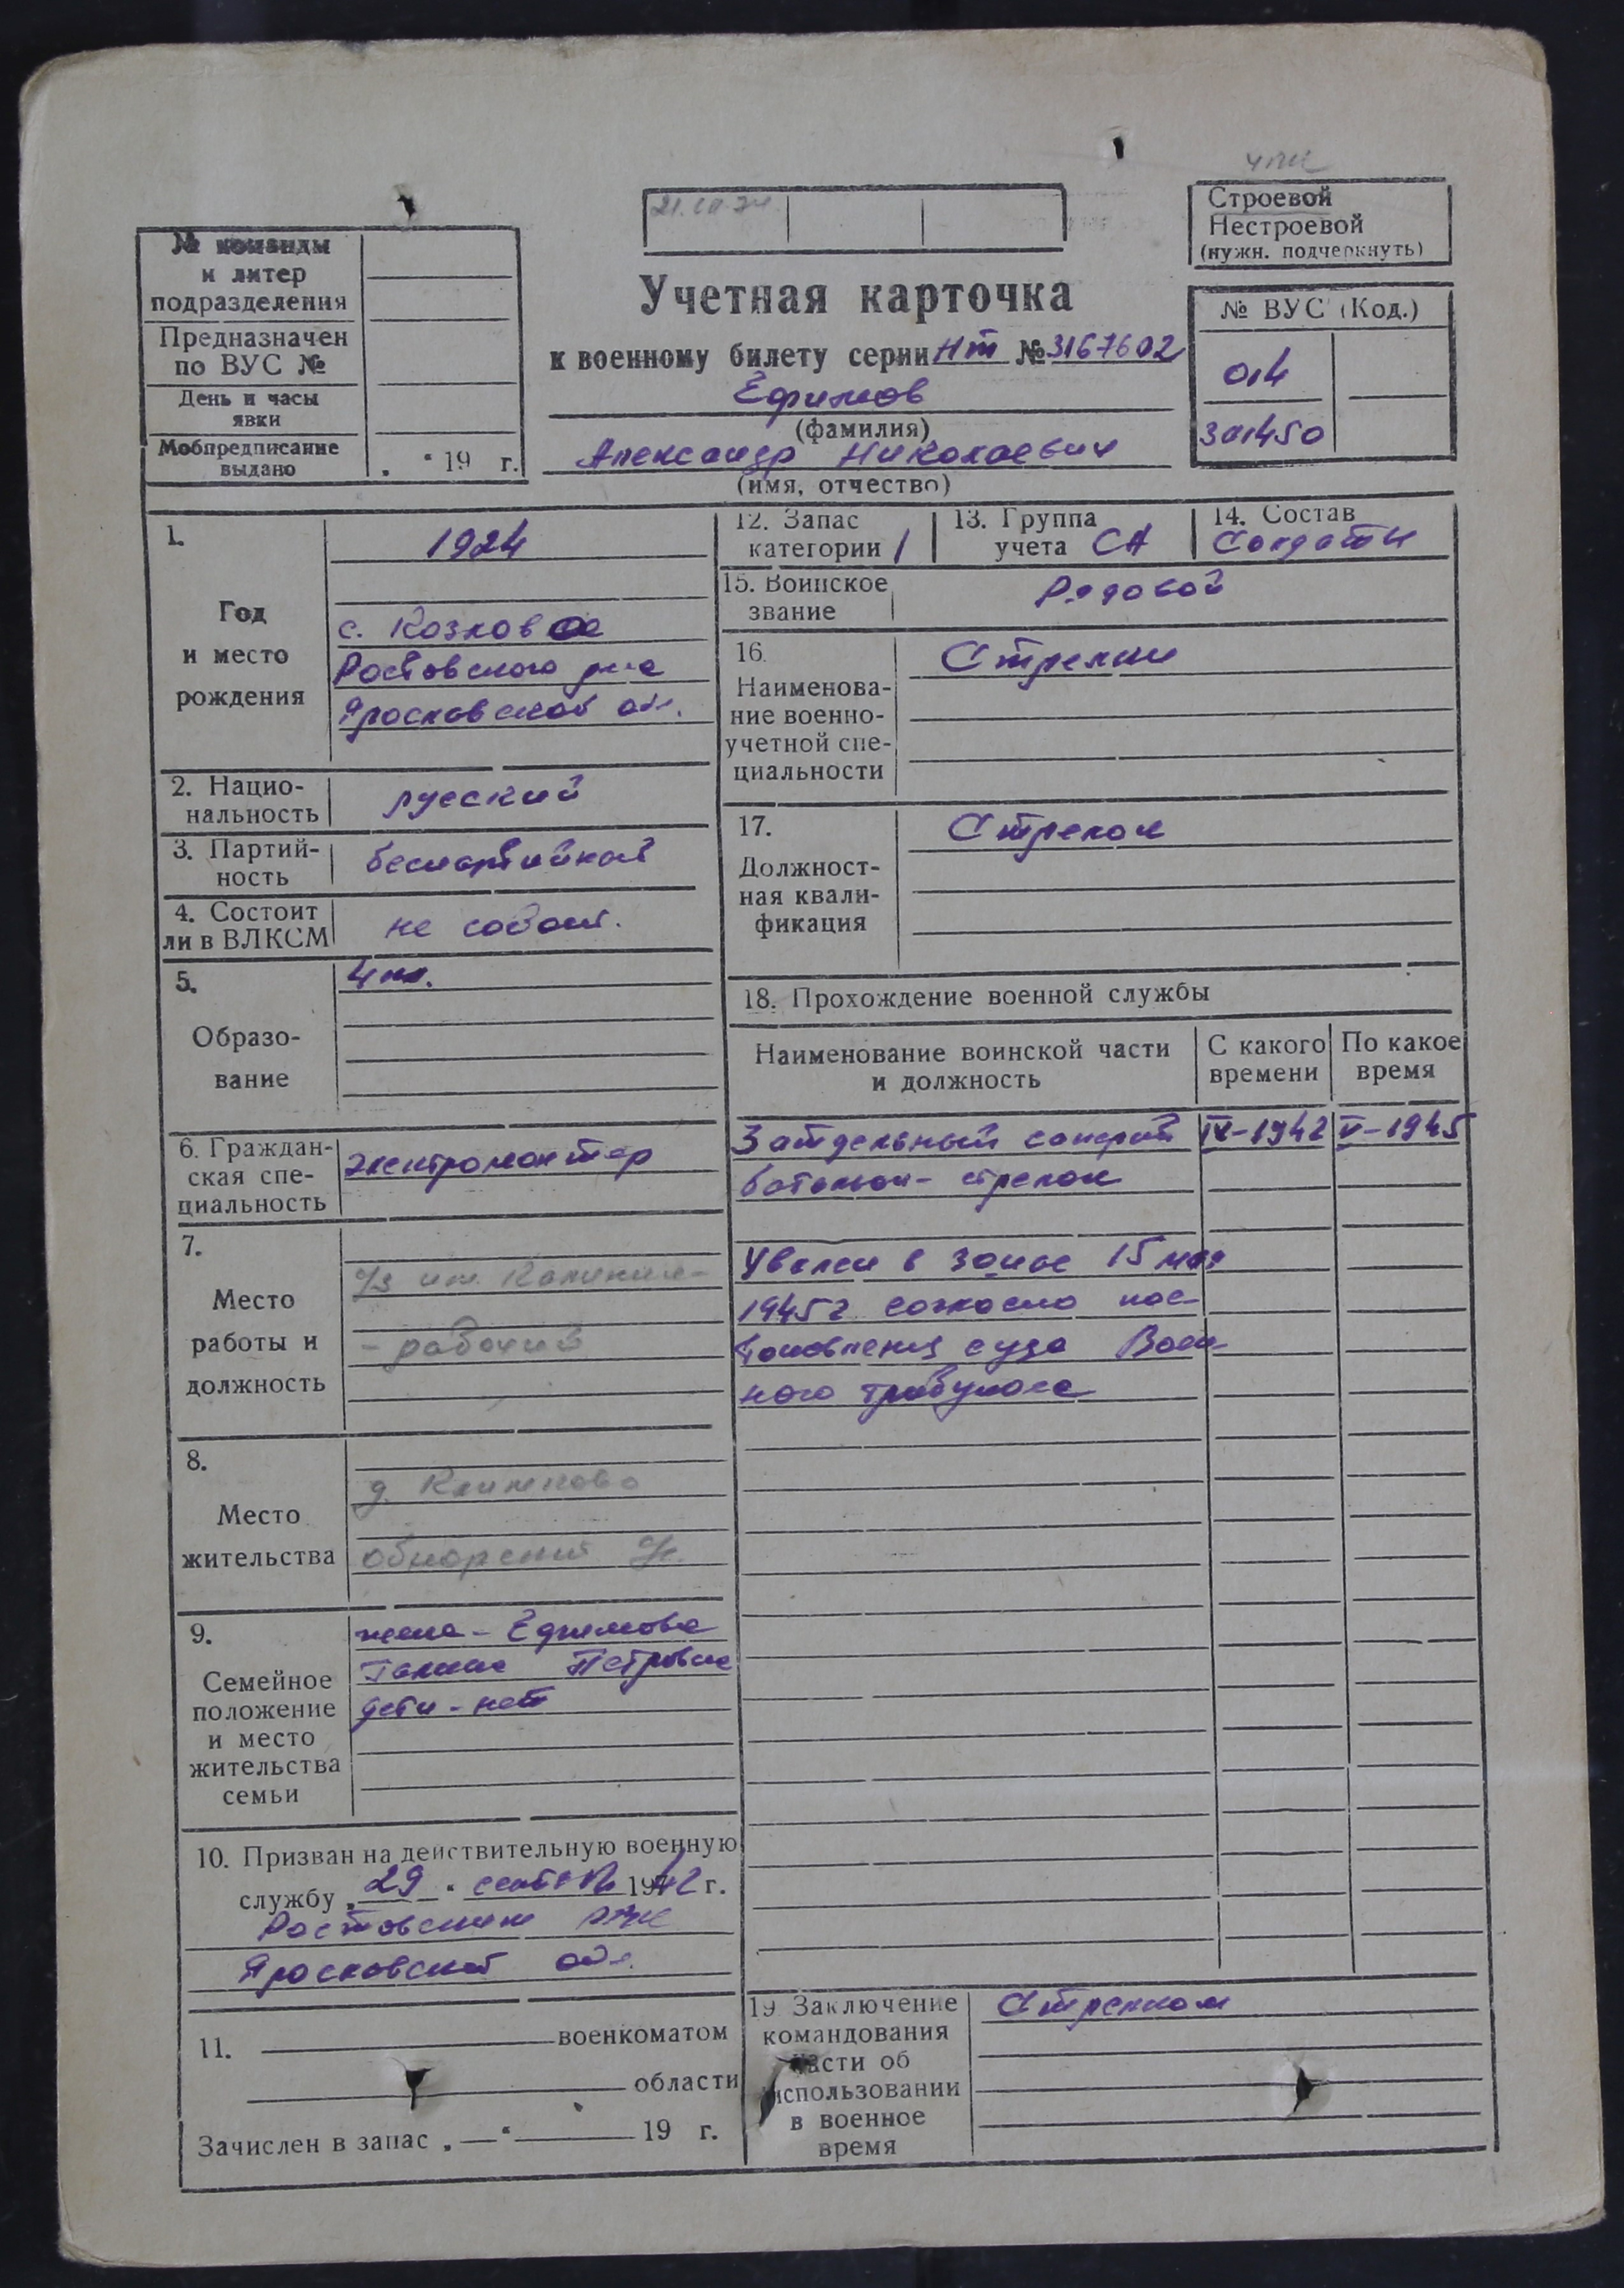 21.III.74
Строевой
Нестроевой
(нужн. подчеркнуть)
№ команды
и литер
подразделения
Предназначен
по ВУС №
День и часы
явки
Мобпредписание
выдано „ “ 19 г.
Учетная карточка
к военному билету серии Нт № 3167602
Ефимов
(фамилия)
Александр Николаевич
(имя, отчество)
№ ВУС (Код.)
04
301450
1.
Год
и место
рождения
1924
с. Козлово
Ростовского р-на
Ярославской обл.
2. Нацио-
нальность русский
3. Партий-
ность беспартийный
4. Состоит
ли в ВЛКСМ не состоит.
5.
Образо-
вание
4 кл.
6. Граждан-
ская спе-
циальность
электромонтер
7.
Место
работы и
должность
им. Калинина-
- рабочий
8.
Место
жительства
д.
9.
Семейное
положение
и место
жительства
семьи
жена - Ефимова
Галина Петровна
дети - нет
10. Призван на действительную военную
службу „ 29 “ сентября 1942 г.
Ростовским РВК
Ярославской обл.
11. военкоматом
области
Зачислен в запас „ — “ 19 г.
12. Запас
категории 1
13. Группа
учета СА
14. Состав
Солдаты
15. Воинское
звание Рядовой
16.
Наименова-
ние военно-
учетной спе-
циальности
Стрелки
17.
Должност-
ная квали-
фикация
Стрелок
18. Прохождение военной службы
Наименование воинской части
и должность
С какого
времени
По какое
время
3 отдельный саперный IX-1942 V-1945
батальон - стрелок
Уволен в запас 15 мая
1945 г. согласно пос-
тановления суда Воен-
ного трибунала
19. Заключение
командования
части об
использовании
в военное
время
Стрелком